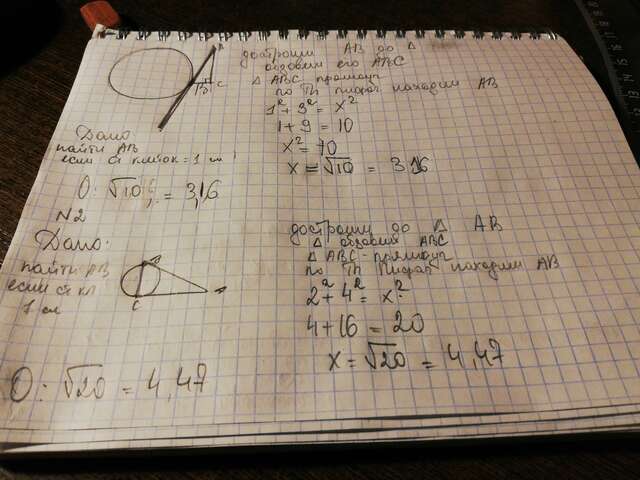 A
B
C
достроим AB до Δ
обзовим его ABC
Δ ABC прямоуг
по Th пифаг находим AB
1² + 3² = x²
1 + 9 = 10
x² = 10
x = √10 = 3.16
Дано
найти AB
если ст клеток = 1 см
О: √10 = 3,16
N2
Дано:
найти AB
если ст кл
1 см
B
C
достроим до Δ AB
Δ обзовим ABC
Δ ABC - прямоуг
по Th Пифаг находим AB
2² + 4² = x²
4 + 16 = 20
x = √20 = 4,47
О: √20 = 4,47